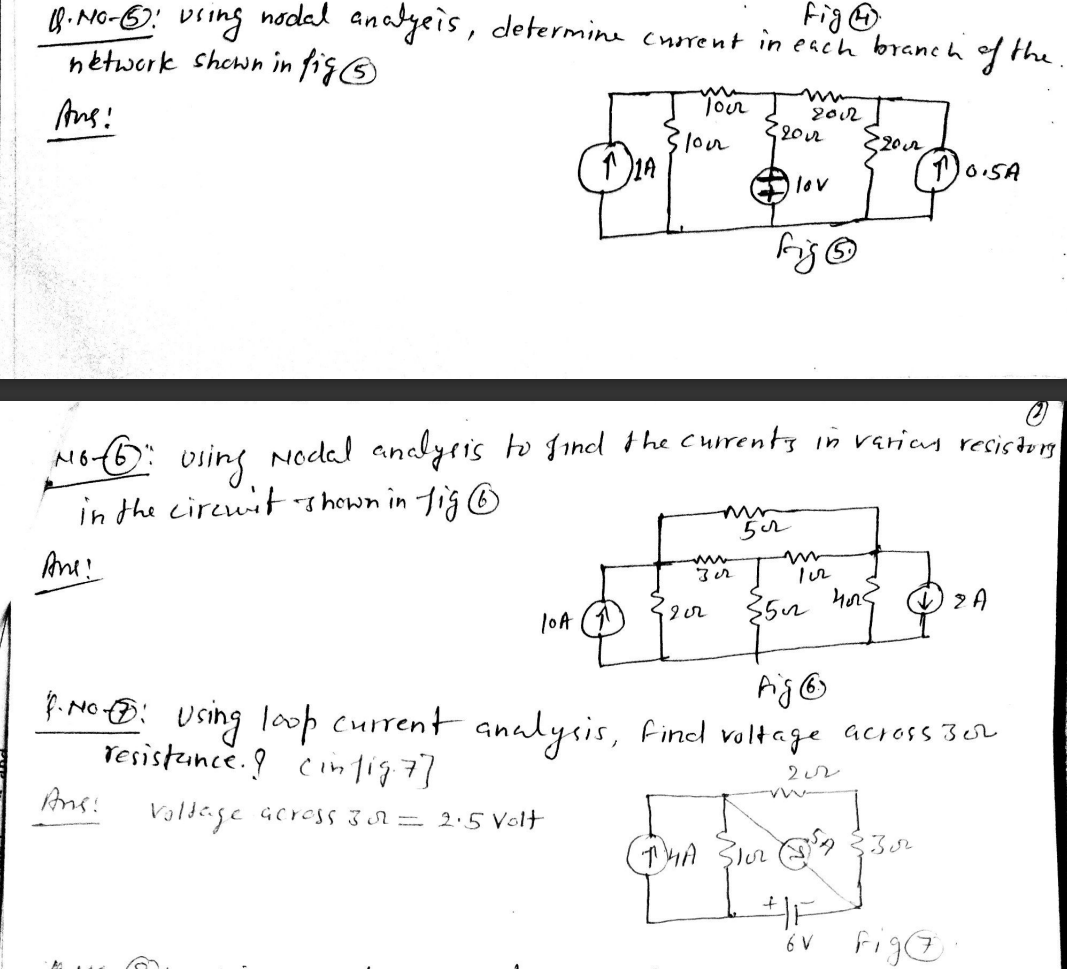 Fig ④
Q.NO-⑤: Using nodal analyeis, determine current in each branch of the.
network shown in fig ⑤
Ans:
10Ω
20Ω
10Ω
20Ω
20Ω
1A
10V
0.5A
Fig ⑤
②
NO-⑥: Using Nodal analysis to find the currents in various resistors
in the circuit shown in fig ⑥
Ans:
5Ω
3Ω
1Ω
10A
2Ω
5Ω
4Ω
2A
Fig ⑥
Q.NO-⑦: Using loop current analysis, find voltage across 3Ω
resistance.? (in fig.7]
Ans: Voltage across 3Ω = 2.5 Volt
2Ω
4A
1Ω
5A
3Ω
+
-
6V
Fig ⑦